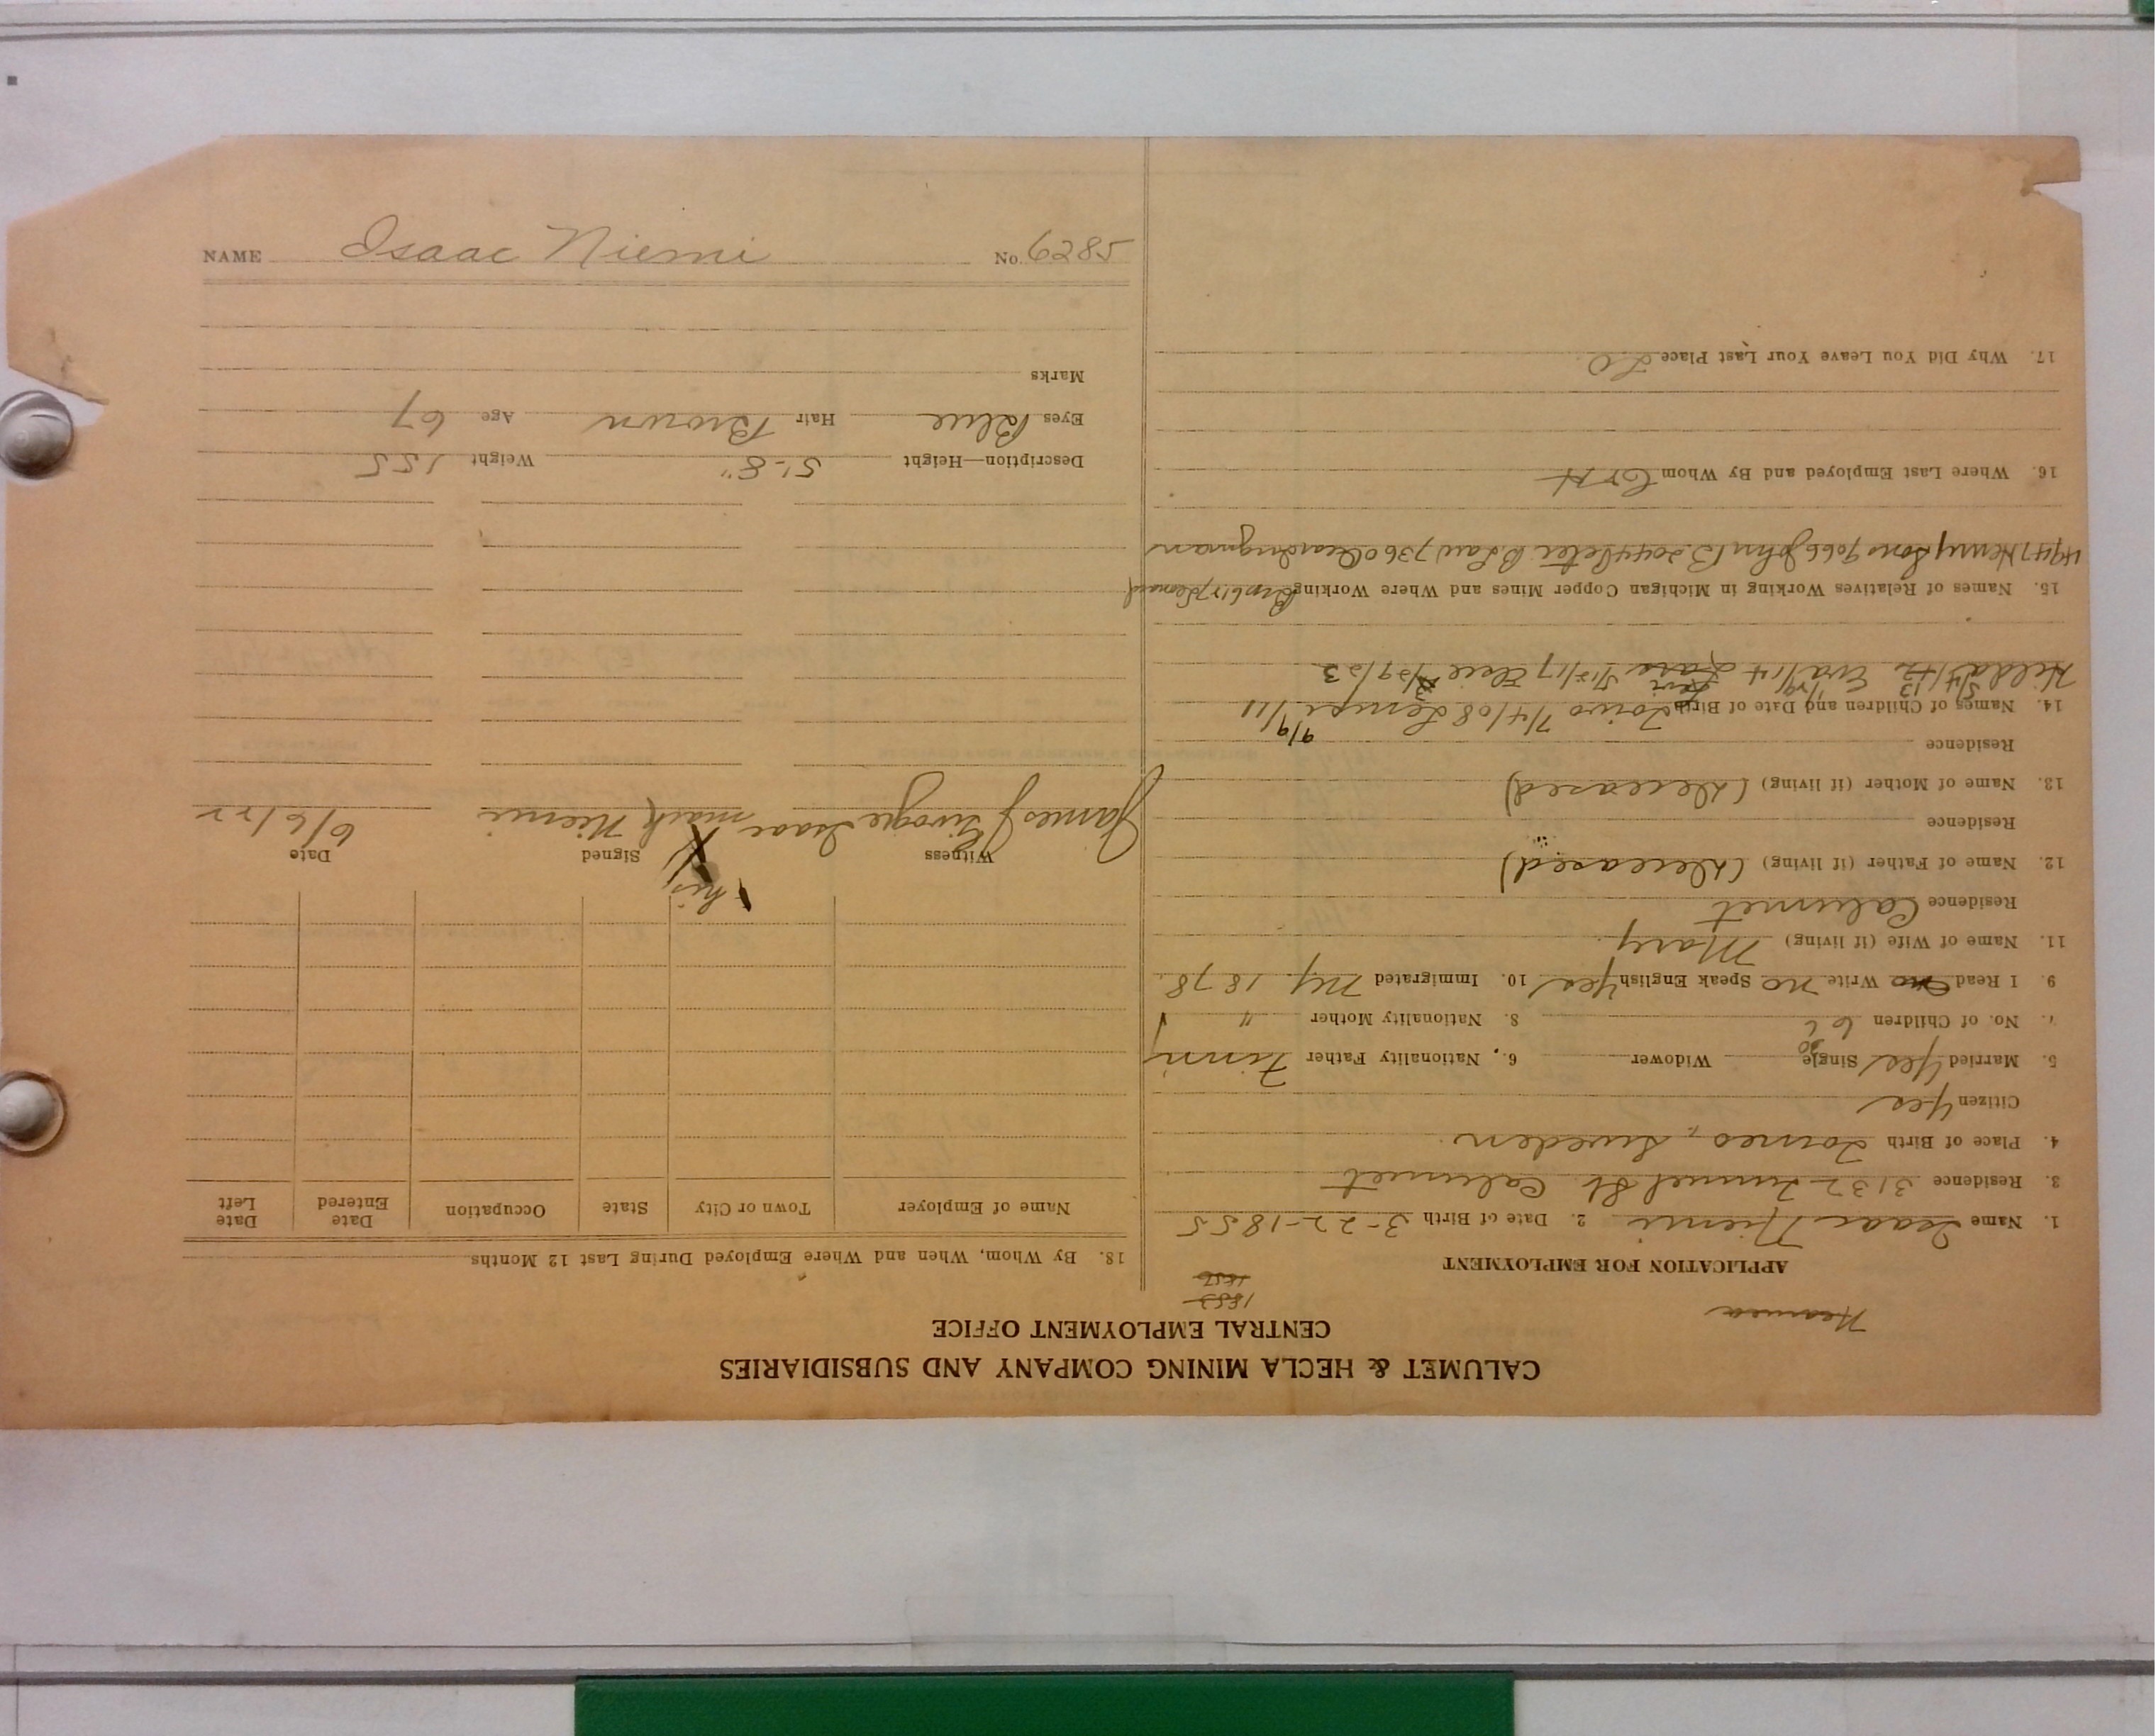 CALUMET & HECLA MINING COMPANY AND SUBSIDIARIES
CENTRAL EMPLOYMENT OFFICE
1853
1856
APPLICATION FOR EMPLOYMENT
1. Name Isaac Niemi 2. Date of Birth 3-22-1855
3. Residence 3132 Tunnel St. Calumet
4. Place of Birth Torneo, Sweden
Citizen Yes
5. Married Yes Single Widower 6. Nationality Father Finn
7. No. of Children 6 8. Nationality Mother "
9. I Read no Write no Speak English Yes 10. Immigrated My. 1878
11. Name of Wife (if living) Mary
Residence Calumet
12. Name of Father (if living) (Deceased)
Residence
13. Name of Mother (if living) (Deceased)
Residence
14. Names of Children and Date of Birth Toivo 7/4/08 Lempi 9/9/11
Hilda 5/4/12 13 Eva 1/29/14 1/15/17 Elsie 3/29/23
15. Names of Relatives Working in Michigan Copper Mines and Where Working
4947 Henry Sons 9066 John B. 2044 Peter B Law 7360
16. Where Last Employed and By Whom C & H
17. Why Did You Leave Your Last Place L.O
18. By Whom, When and Where Employed During Last 12 Months
Name of Employer Town or City State Occupation Date Entered Date Left
his
Witness Signed X Date
James J. Isaac mark Niemi 6/6/22
Description—Height 5'-8" Weight 155
Eyes Blue Hair Brown Age 67
Marks
NAME Isaac Niemi No. 6285